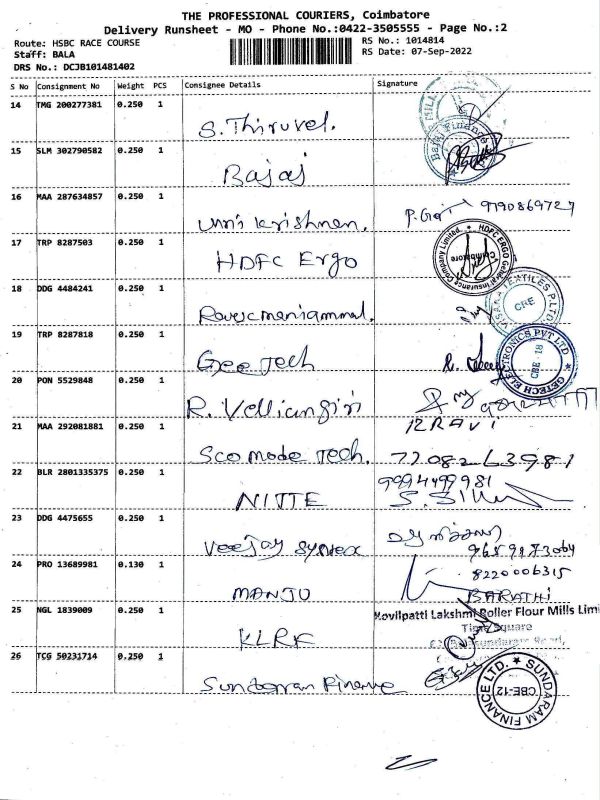 THE PROFESSIONAL COURIERS, Coimbatore
Delivery Runsheet - MO - Phone No.:0422-3505555 - Page No.:2
Route: HSBC RACE COURSE
RS No.: 1014814
Staff: BALA
RS Date: 07-Sep-2022
DRS No.: DCJB101481402
S No Consignment No Weight PCS Consignee Details Signature
14 TMG 200277381 0.250 1
S. Thiruvel.
15 SLM 302790582 0.250 1
Bajaj Finance
Bajaj
16 MAA 287634857 0.250 1
Unni Krishnan. 9790869727
17 TRP 8287503 0.250 1
HDFC Ergo
HDFC ERGO General Insurance Company Limited. Coimbatore
18 DDG 4484241 0.250 1
TEXTILES P.LTD CBE
19 TRP 8287818 0.250 1
Gee Tech
GETECH ELECTRONICS PVT LTD CBE - 18
20 PON 5529848 0.250 1
R. Velliangiri
21 MAA 292081881 0.250 1
RAVI
Sco mode Tech. 7708263981
22 BLR 2801335375 0.250 1
9994499981
NITTE
23 DDG 4475655 0.250 1
Veejay Syntex
9659873064
24 PRO 13689981 0.130 1
8220006315
MANJU BARATHI
25 NGL 1839009 0.250 1
Kovilpatti Lakshmi Roller Flour Mills Limi
Time Square
KLRF
26 TCG 50231714 0.250 1
Sundaram Finance
SUNDARAM FINANCE LTD. CBE-12